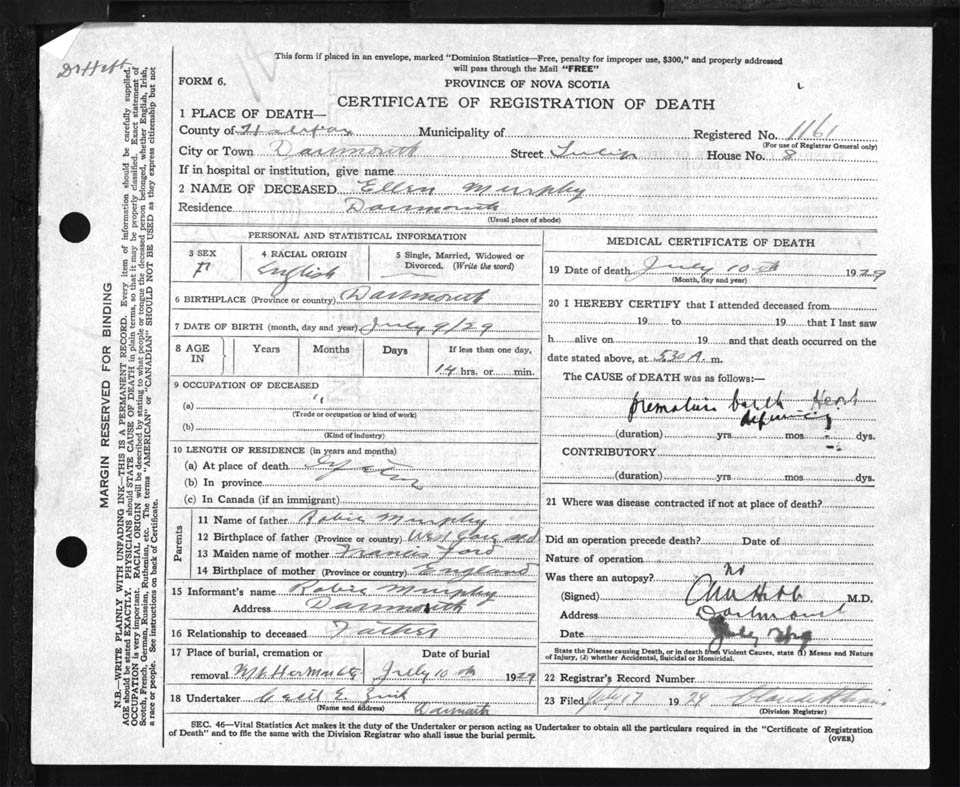 Dr Hebb
This form if placed in an envelope, marked "Dominion Statistics—Free, penalty for improper use, $300," and properly addressed
will pass through the Mail "FREE"
FORM 6.
PROVINCE OF NOVA SCOTIA
CERTIFICATE OF REGISTRATION OF DEATH
1 PLACE OF DEATH—
County of Halifax Municipality of Registered No. 1161
(For use of Registrar General only)
City or Town Dartmouth Street Tulip House No. 8
If in hospital or institution, give name
2 NAME OF DECEASED Ellen Murphy
Residence Dartmouth
(Usual place of abode)
PERSONAL AND STATISTICAL INFORMATION
3 SEX F
4 RACIAL ORIGIN English
5 Single, Married, Widowed or
Divorced. (Write the word)
6 BIRTHPLACE (Province or country) Dartmouth
7 DATE OF BIRTH (month, day and year) July 9/29
8 AGE IN Years Months Days If less than one day,
14 hrs. or min.
9 OCCUPATION OF DECEASED
(a) "
(Trade or occupation or kind of work)
(b)
(Kind of industry)
10 LENGTH OF RESIDENCE (in years and months)
(a) At place of death
(b) In province
(c) In Canada (if an immigrant)
Parents
11 Name of father Robie Murphy
12 Birthplace of father (Province or country) West
13 Maiden name of mother Francis Ford
14 Birthplace of mother (Province or country) England
15 Informant's name Robie Murphy
Address Dartmouth
16 Relationship to deceased Father
17 Place of burial, cremation or Date of burial
removal Mt Hermon July 10th 1929
18 Undertaker Cecil E. Zink
(Name and address) Dartmouth
MEDICAL CERTIFICATE OF DEATH
19 Date of death July 10th 1929
(Month, day and year)
20 I HEREBY CERTIFY that I attended deceased from
19 to 19 that I last saw
h alive on 19 and that death occurred on the
date stated above, at 5.30 A. m.
The CAUSE of DEATH was as follows:—
premature birth Heart
(duration) yrs mos dys.
CONTRIBUTORY
(duration) yrs mos dys.
21 Where was disease contracted if not at place of death?
Did an operation precede death? Date of
Nature of operation
Was there an autopsy? no
(Signed) Hebb M.D.
Address Dartmouth
Date July
State the Disease causing Death, or in death from Violent Causes, state (1) Means and Nature
of Injury, (2) whether Accidental, Suicidal or Homicidal.
22 Registrar's Record Number
23 Filed July 17 1929
(Division Registrar)
SEC. 46—Vital Statistics Act makes it the duty of the Undertaker or person acting as Undertaker to obtain all the particulars required in the "Certificate of Registration
of Death" and to file the same with the Division Registrar who shall issue the burial permit.
(OVER)
MARGIN RESERVED FOR BINDING
N.B.—WRITE PLAINLY WITH UNFADING INK—THIS IS A PERMANENT RECORD. Every item of information should be carefully supplied.
AGE should be stated EXACTLY. PHYSICIANS should STATE CAUSE OF DEATH in plain terms, so that it may be properly classified. Exact statement of
OCCUPATION is very important. RACIAL ORIGIN will be described by stating to what people or tongue the deceased person belonged, whether English, Irish,
Scotch, French, German, Russian, Ruthenian, etc. The terms "AMERICAN" or "CANADIAN" SHOULD NOT BE USED as they express citizenship but not
a race or people. See instructions on back of Certificate.